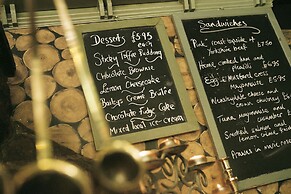 Desserts £5.95
Sticky Toffee Pudding
Chocolate Brownie
Lemon Cheesecake
Baileys Creme Brulee
Chocolate Fudge Cake
Mixed local ice-cream
Sandwiches
"Pink" roast topside of
Yorkshire beef £7.50
Home cooked ham and
Egg & mustard cress
Mayonnaise
Wensleydale cheese and
Tuna, mayonnaise and
cucumber
Smoked salmon and
lemon, creme
Prawns in marie rose